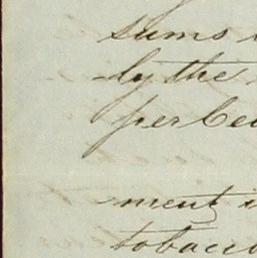 sums
by the
per Ce
ment
tobacc